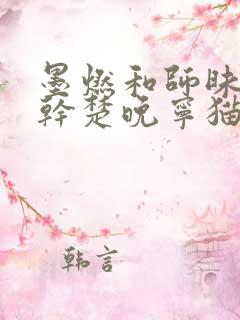 墨燃和師昧
幹楚晚寧猫
韩言